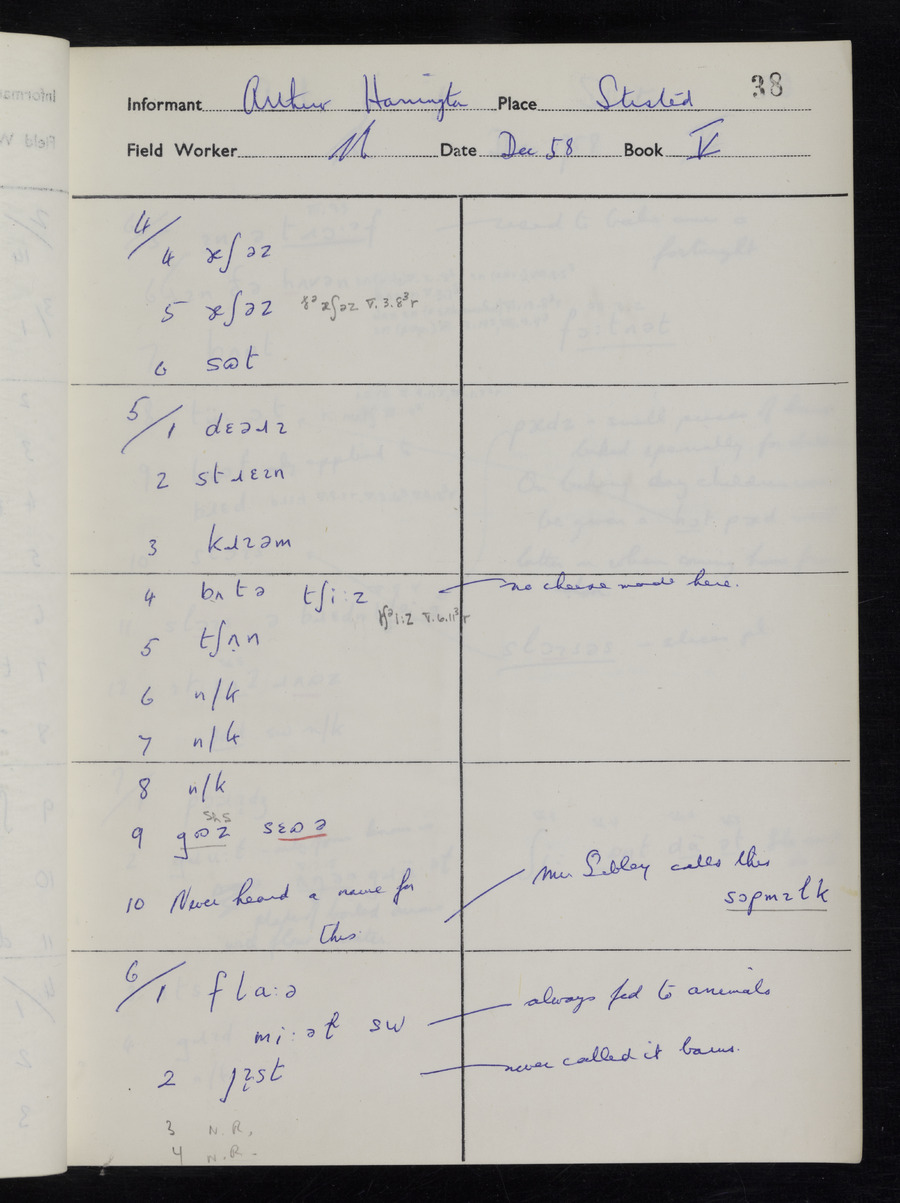 38
Informant Arthur Harrington Place Stisted
Field Worker Date Dec 58 Book V
4/
4 æʃəz
5 æʃəz
6 sɷt
5/1 dɛəɹɪ
2 stɹɛɪn
3 kɹɪəm
4 bʌtə tʃi:z no cheese made here.
5 tʃʌn
6 n/k
7 n/k
8 n/k
9 sʌs
sɛɷə
10 Never heard a name for
this. Mrs Sibley calls this
6/1 fla:ə
always fed to animals
2 jɪst never called it barm.
3 N.R.
4 N.R.